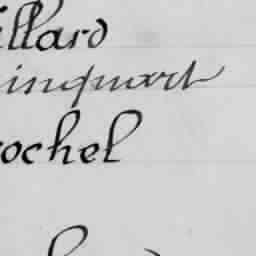 illard
inquart
ochel